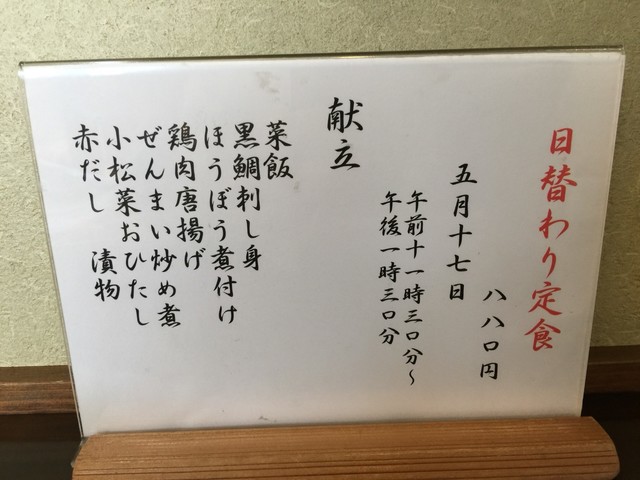 日替わり定食
八八〇円
五月十七日
午前十一時三〇分〜
午後一時三〇分
献立
菜飯
黒鯛刺し身
ほうぼう煮付け
鶏肉唐揚げ
ぜんまい炒め煮
小松菜おひたし
赤だし 漬物